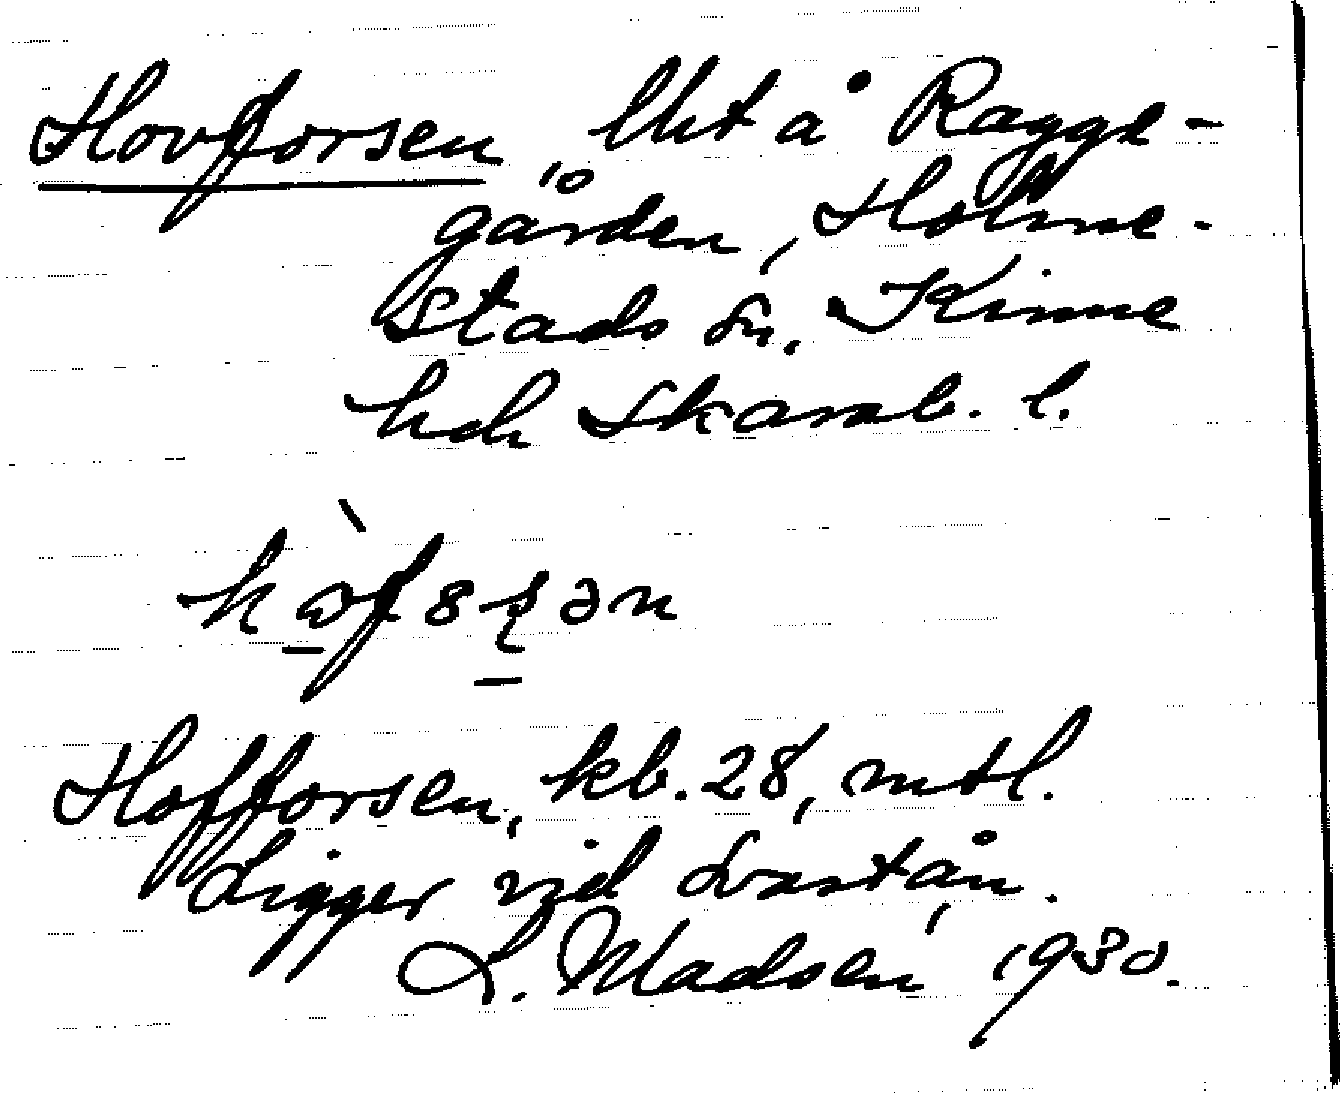 Hovforsen, lht å Ragge-
gården, Holme-
stads sn, Kinne
hd, Skarab. l.
Hofforsen, kb. 28, mtl.
Ligger vid Svartån.
L. Madsen, 1930.